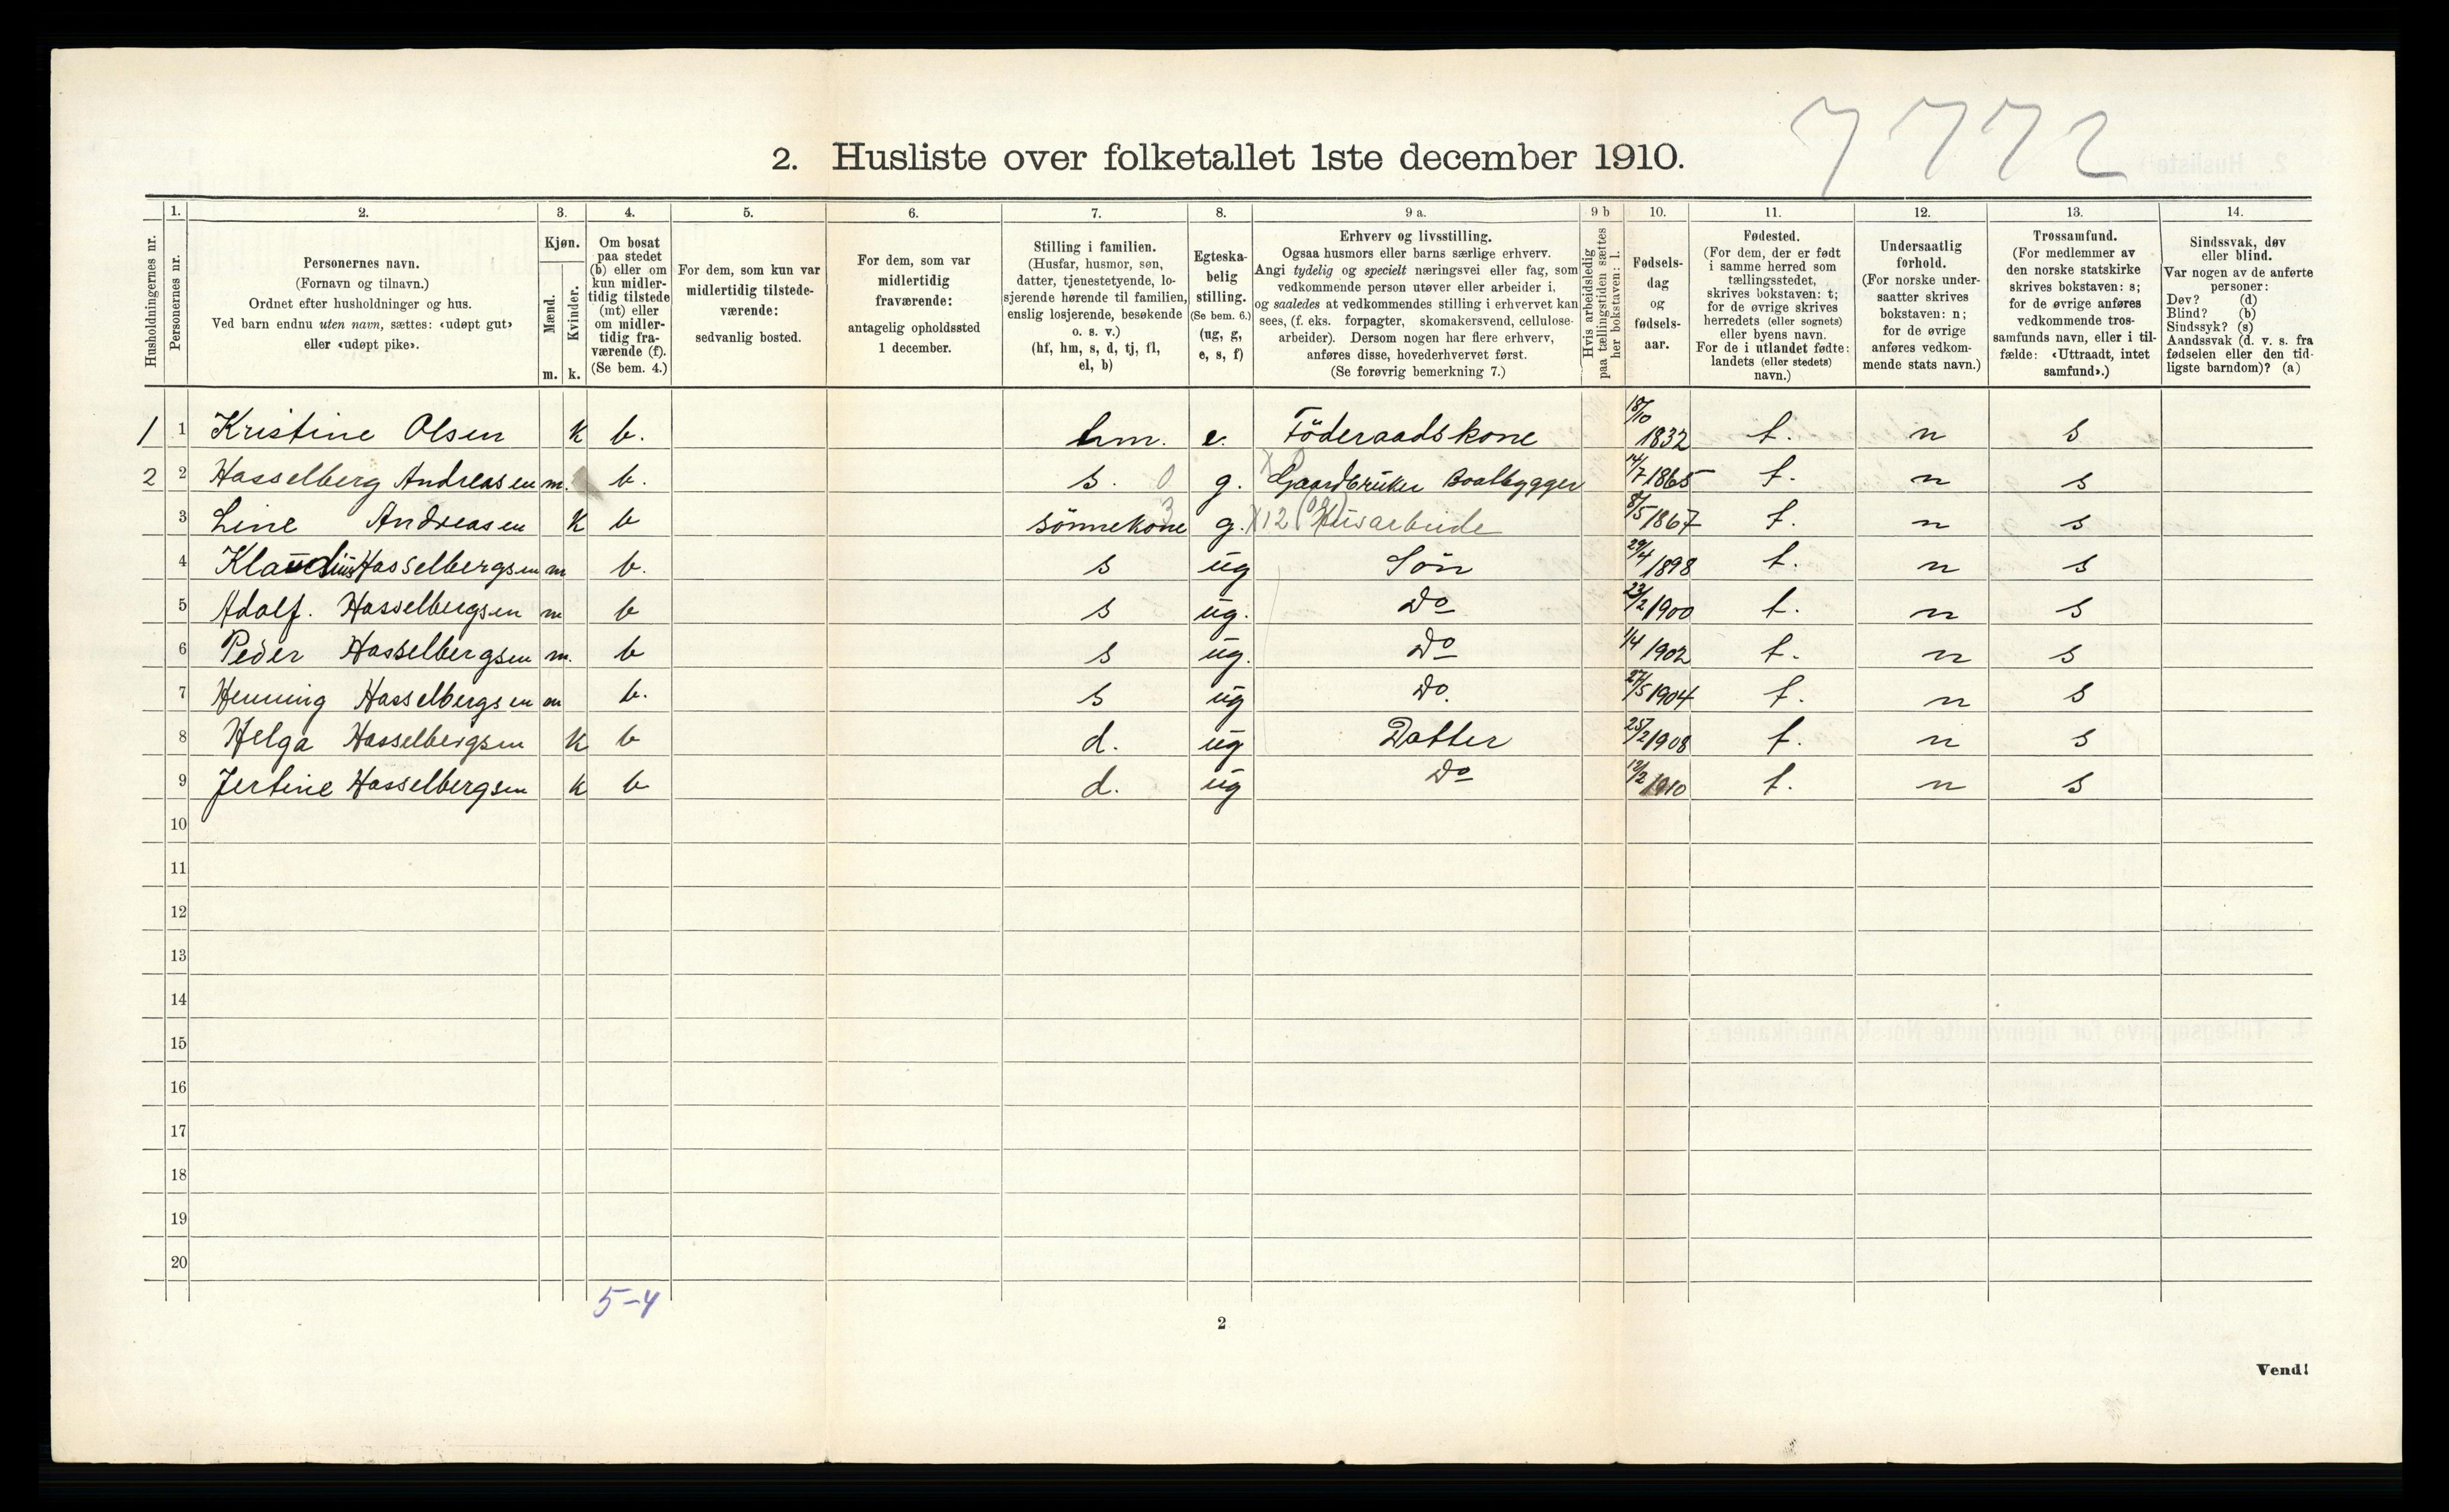 7772
2. Husliste over folketallet 1ste december 1910.
Husholdningernes nr.
1.
Personernes nr.
2.
Personernes navn.
(Fornavn og tilnavn.)
Ordnet efter husholdninger og hus.
Ved barn endnu uten navn, sættes: «udøpt gut»
eller «udøpt pike».
3.
Kjøn.
Mænd.
Kvinder.
m. k.
4.
Om bosat
paa stedet
(b) eller om
kun midler-
tidig tilstede
(mt) eller
om midler-
tidig fra-
værende (f).
(Se bem. 4.)
5.
For dem, som kun var
midlertidig tilstede-
værende:
sedvanlig bosted.
6.
For dem, som var
midlertidig
fraværende:
antagelig opholdssted
1 december.
7.
Stilling i familien.
(Husfar, husmor, søn,
datter, tjenestetyende, lo-
sjerende hørende til familien,
enslig losjerende, besøkende
o. s. v.)
(hf, hm, s, d, tj, fl,
el, b)
8.
Egteska-
belig
stilling.
(Se bem. 6.)
(ug, g,
e, s, f)
9 a.
Erhverv og livsstilling.
Ogsaa husmors eller barns særlige erhverv.
Angi tydelig og specielt næringsvei eller fag, som
vedkommende person utøver eller arbeider i,
og saaledes at vedkommendes stilling i erhvervet kan
sees, (f. eks. forpagter, skomakersvend, cellulose-
arbeider). Dersom nogen har flere erhverv,
anføres disse, hovederhvervet først.
(Se forøvrig bemerkning 7.)
9 b
Hvis arbeidsledig
paa tællingstiden sættes
her bokstaven: l.
10.
Fødsels-
dag
og
fødsels-
aar.
11.
Fødested.
(For dem, der er født
i samme herred som
tællingsstedet,
skrives bokstaven: t;
for de øvrige skrives
herredets (eller sognets)
eller byens navn.
For de i utlandet fødte:
landets (eller stedets)
navn.)
12.
Undersaatlig
forhold.
(For norske under-
saatter skrives
bokstaven: n;
for de øvrige
anføres vedkom-
mende stats navn.)
13.
Trossamfund.
(For medlemmer av
den norske statskirke
skrives bokstaven: s;
for de øvrige anføres
vedkommende tros-
samfunds navn, eller i til-
fælde: «Uttraadt, intet
samfund».)
14.
Sindssvak, døv
eller blind.
Var nogen av de anførte
personer:
Døv? (d)
Blind? (b)
Sindssyk? (s)
Aandssvak (d. v. s. fra
fødselen eller den tid-
ligste barndom)? (a)
1 1 Kristine Olsen K b. hm. e. Föderaadskone 18/10 1832 t. n s
2 2 Hasselberg Andreasen m. b. s. 0 g. Gaardbrüker Baatbygger 14/7 1865 t. n s
3 Line Andreasen K b sönnekone 3 g. X12 (og) Husarbeide 8/5 1867 t. n s
4 Klaudius Hasselbergsen m b. s ug Sön 29/4 1898 t. n s
5 Adolf. Hasselbergsen m b s ug. Do 23/2 1900 t. n s
6 Peder Hasselbergsen m. b s ug. Do 1/4 1902 t. n s
7 Henning Hasselbergsen m b. s ug Do. 27/5 1904 t. n s
8 Helga Hasselbergsen K b d. ug Datter 25/2 1908 t. n s
9 Jertine Hasselbergsen K b d. ug Do 12/2 1910 t. n s
10
11
12
13
14
15
16
17
18
19
20
5-4
2
Vend!